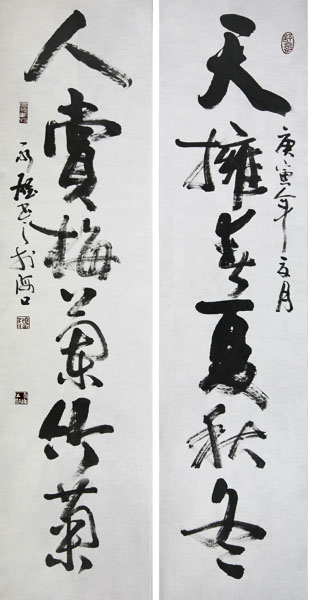 天擁春夏秋冬
庚寅年之月
人賞梅蘭竹菊
永雄書於海口